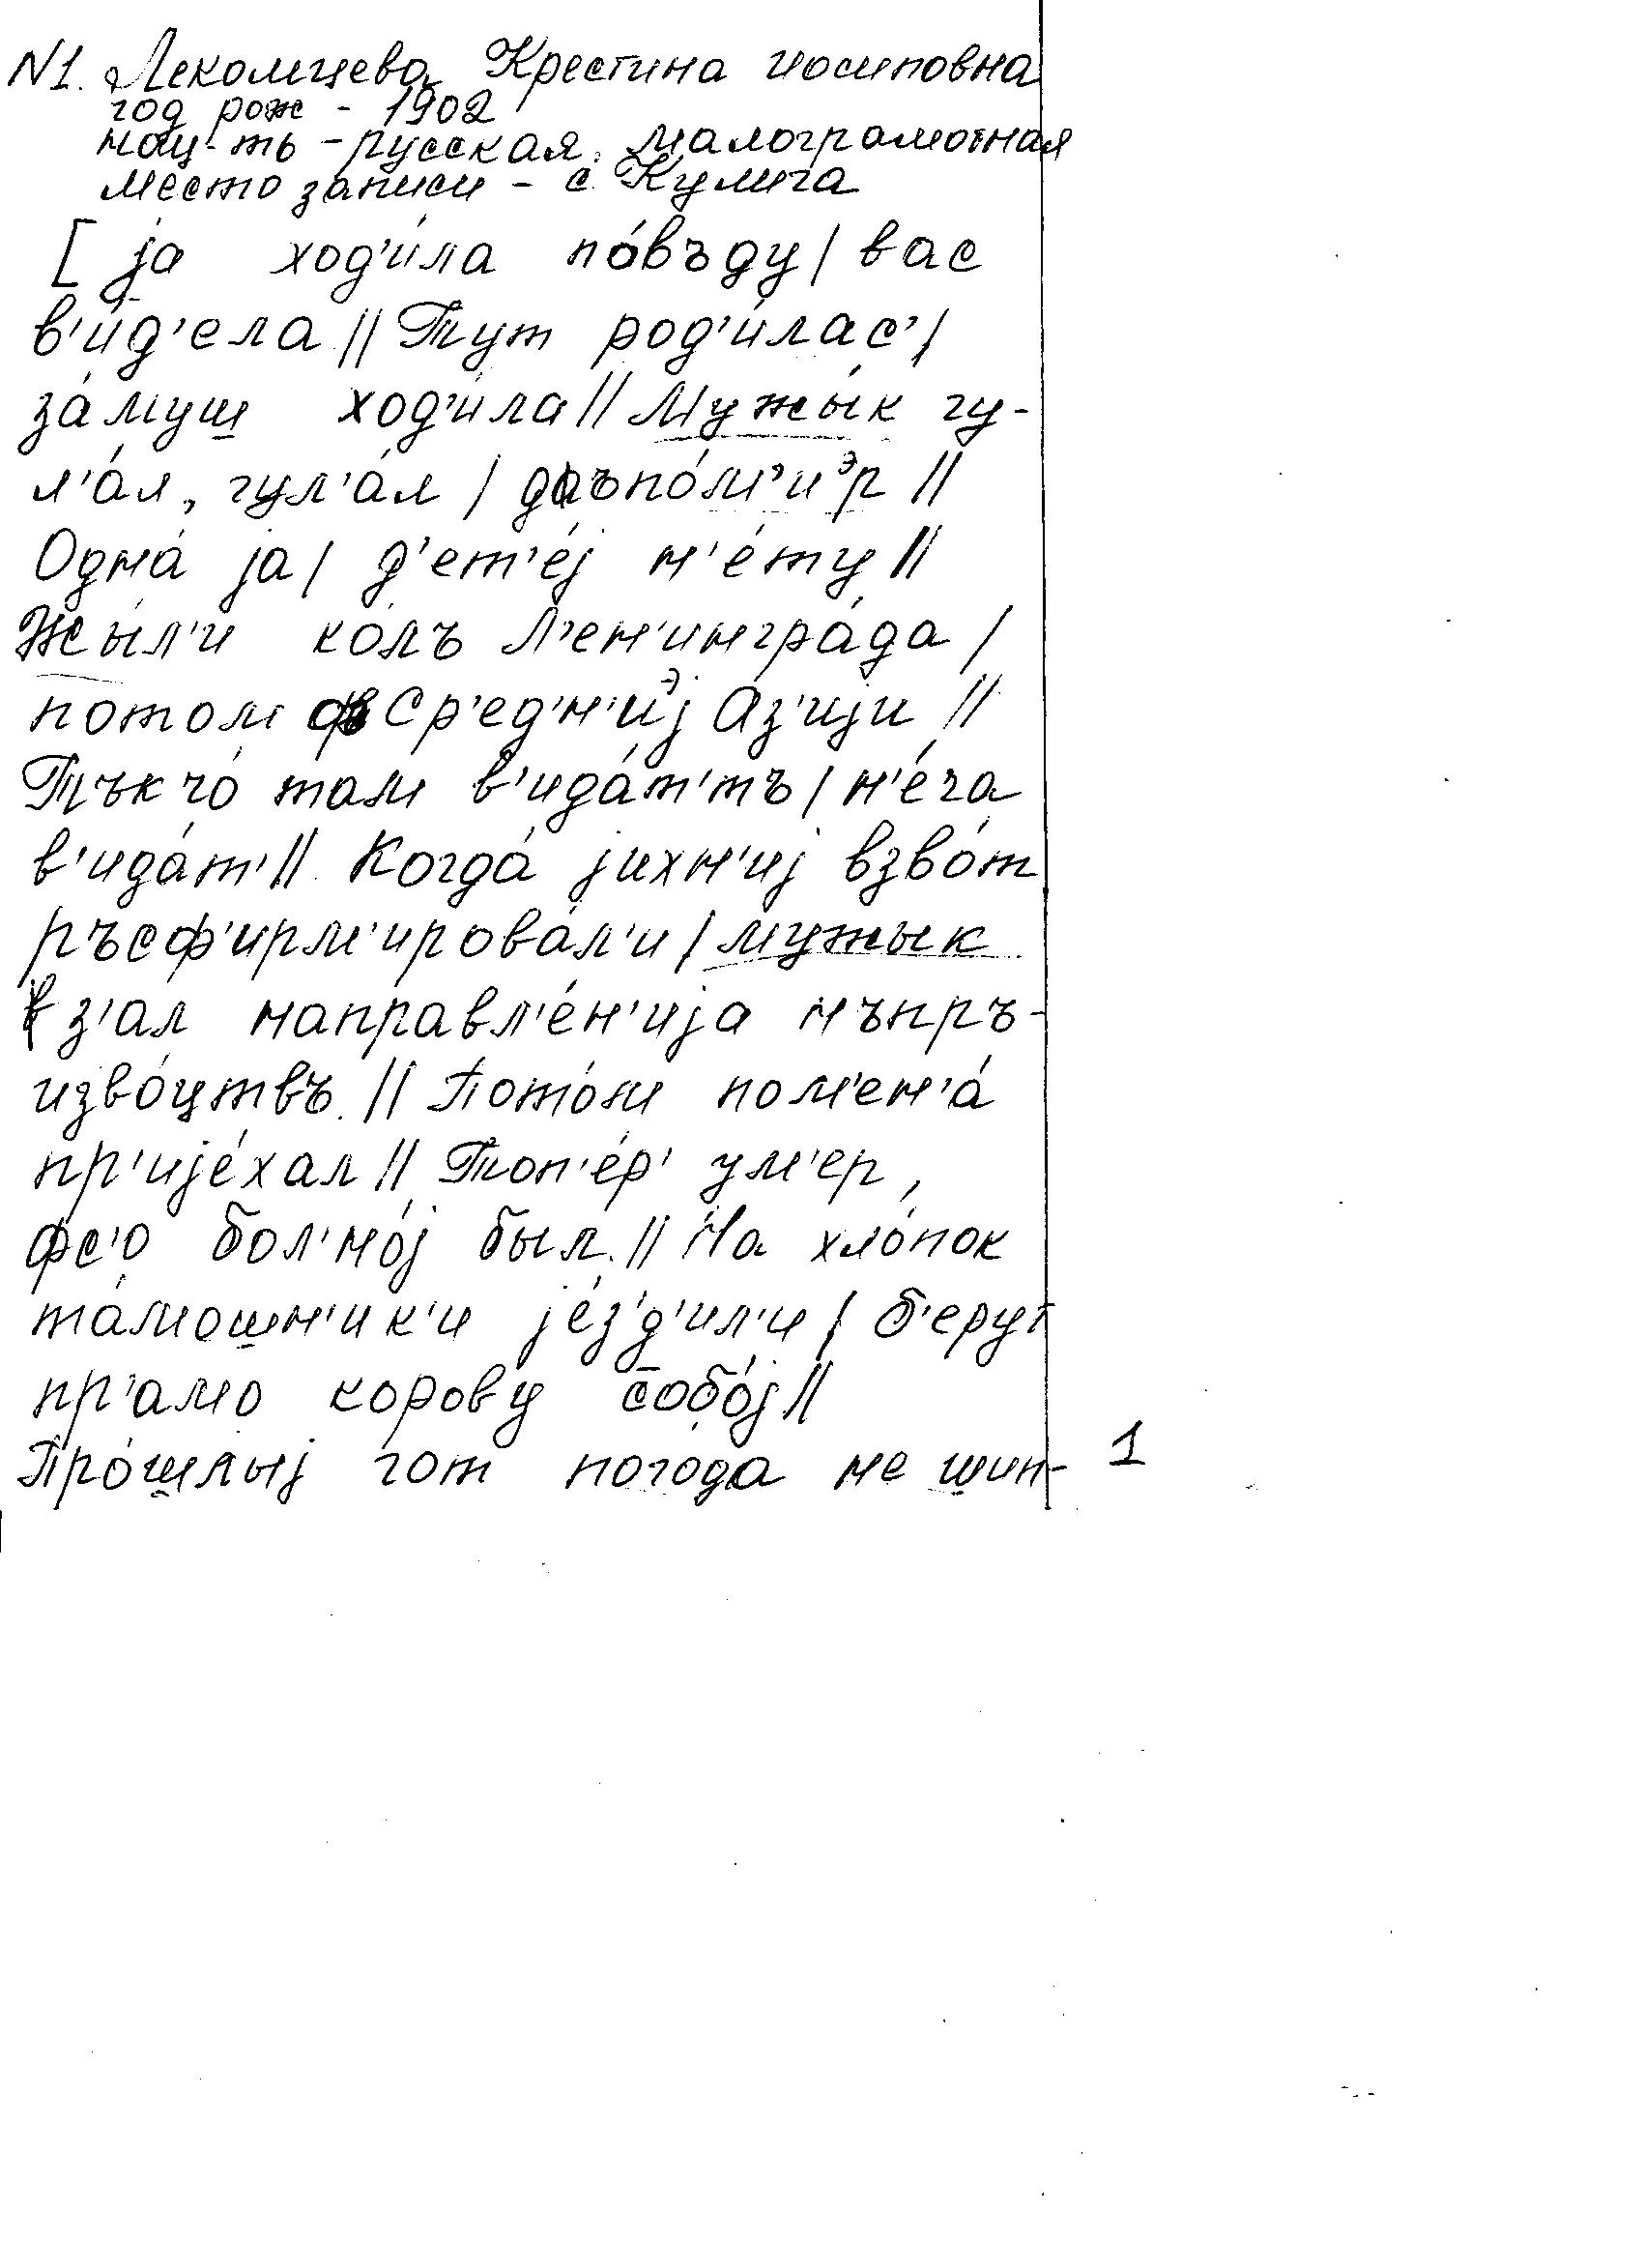 N1. Лекомцева Крестина Иосиповна
год рож - 1902
нац-ть - русская, малограмотная
место записи - с. Кулига
[ jа ход'и́ла по́въду / вас
в'и́д'ела // Тут род'и́лас' /
за́муш ход'и́ла // Мужы́к гу-
л'а́л, гул'а́л / дъпо́м'иэр //
Одна́ jа / д'ет'е́j н'е́ту //
Жы́л'и ко́лъ Л'ен'ингра́да /
потом в Ср'ед'н'иэj Аз'иjи //
Тъкчо́ там в'ида́т'тъ / н'е́ча
в'ида́т' // Когда́ jихн'иj взво́т
ръсф'ирм'ирова́л'и / мужык
вз'ал направл'е́н'иjа нъпръ-
изво́цтвъ. // Пото́м пом'ен'а́
пр'иjе́хал // Топ'е́р' ум'ер,
фс'о бол'но́j был. // На хло́пок
та́мошн'ик'и jе́з'д'ил'и / б'ерут
пр'амо корову с̄обо́j //
Про́шлыj гот погода не шип-
1